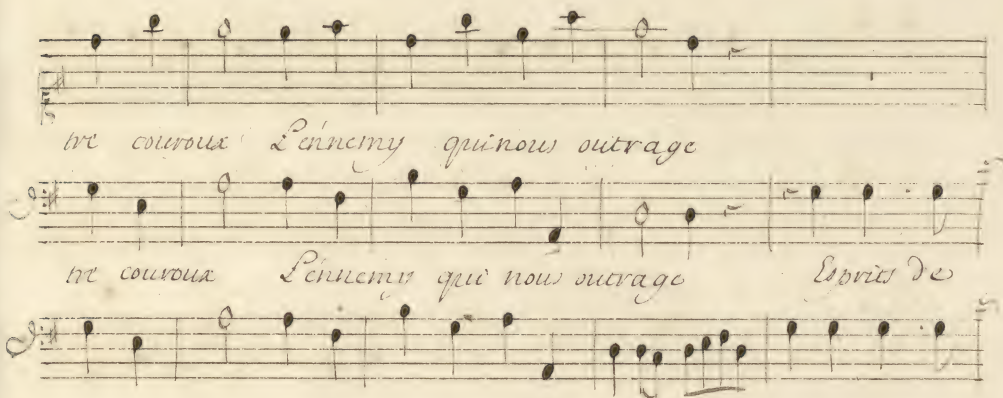 tre couroux L'ennemy qui nous outrage
tre couroux L'ennemy qui nous outrage Esprits de